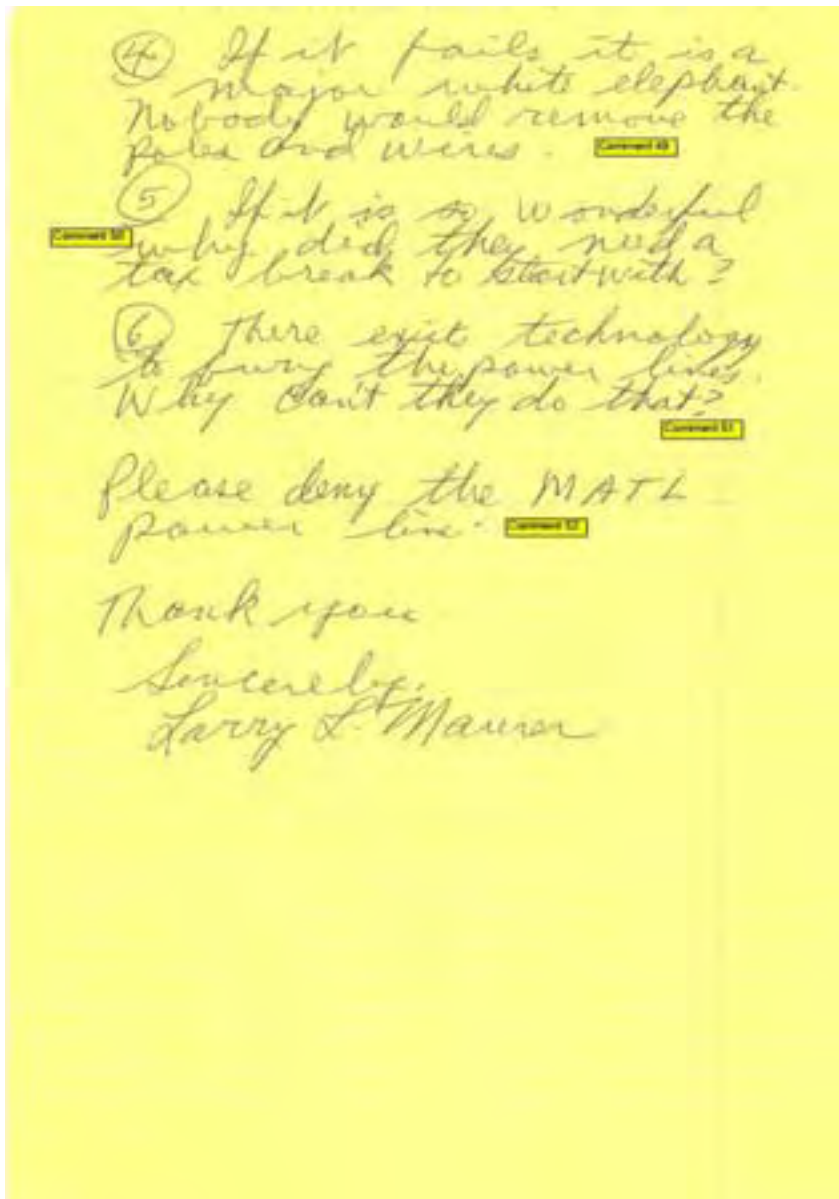 ④ If it fails it is a
major white elephant.
Nobody would remove the
poles and wires. Comment 49
⑤ If it is so wonderful
Comment 50 why did they need a
tax break to start with?
⑥ There exist technology
to bury the power lines.
Why can't they do that?
Comment 51
Please deny the MATL
power line. Comment 52
Thank you
Sincerely,
Larry L. Maurer